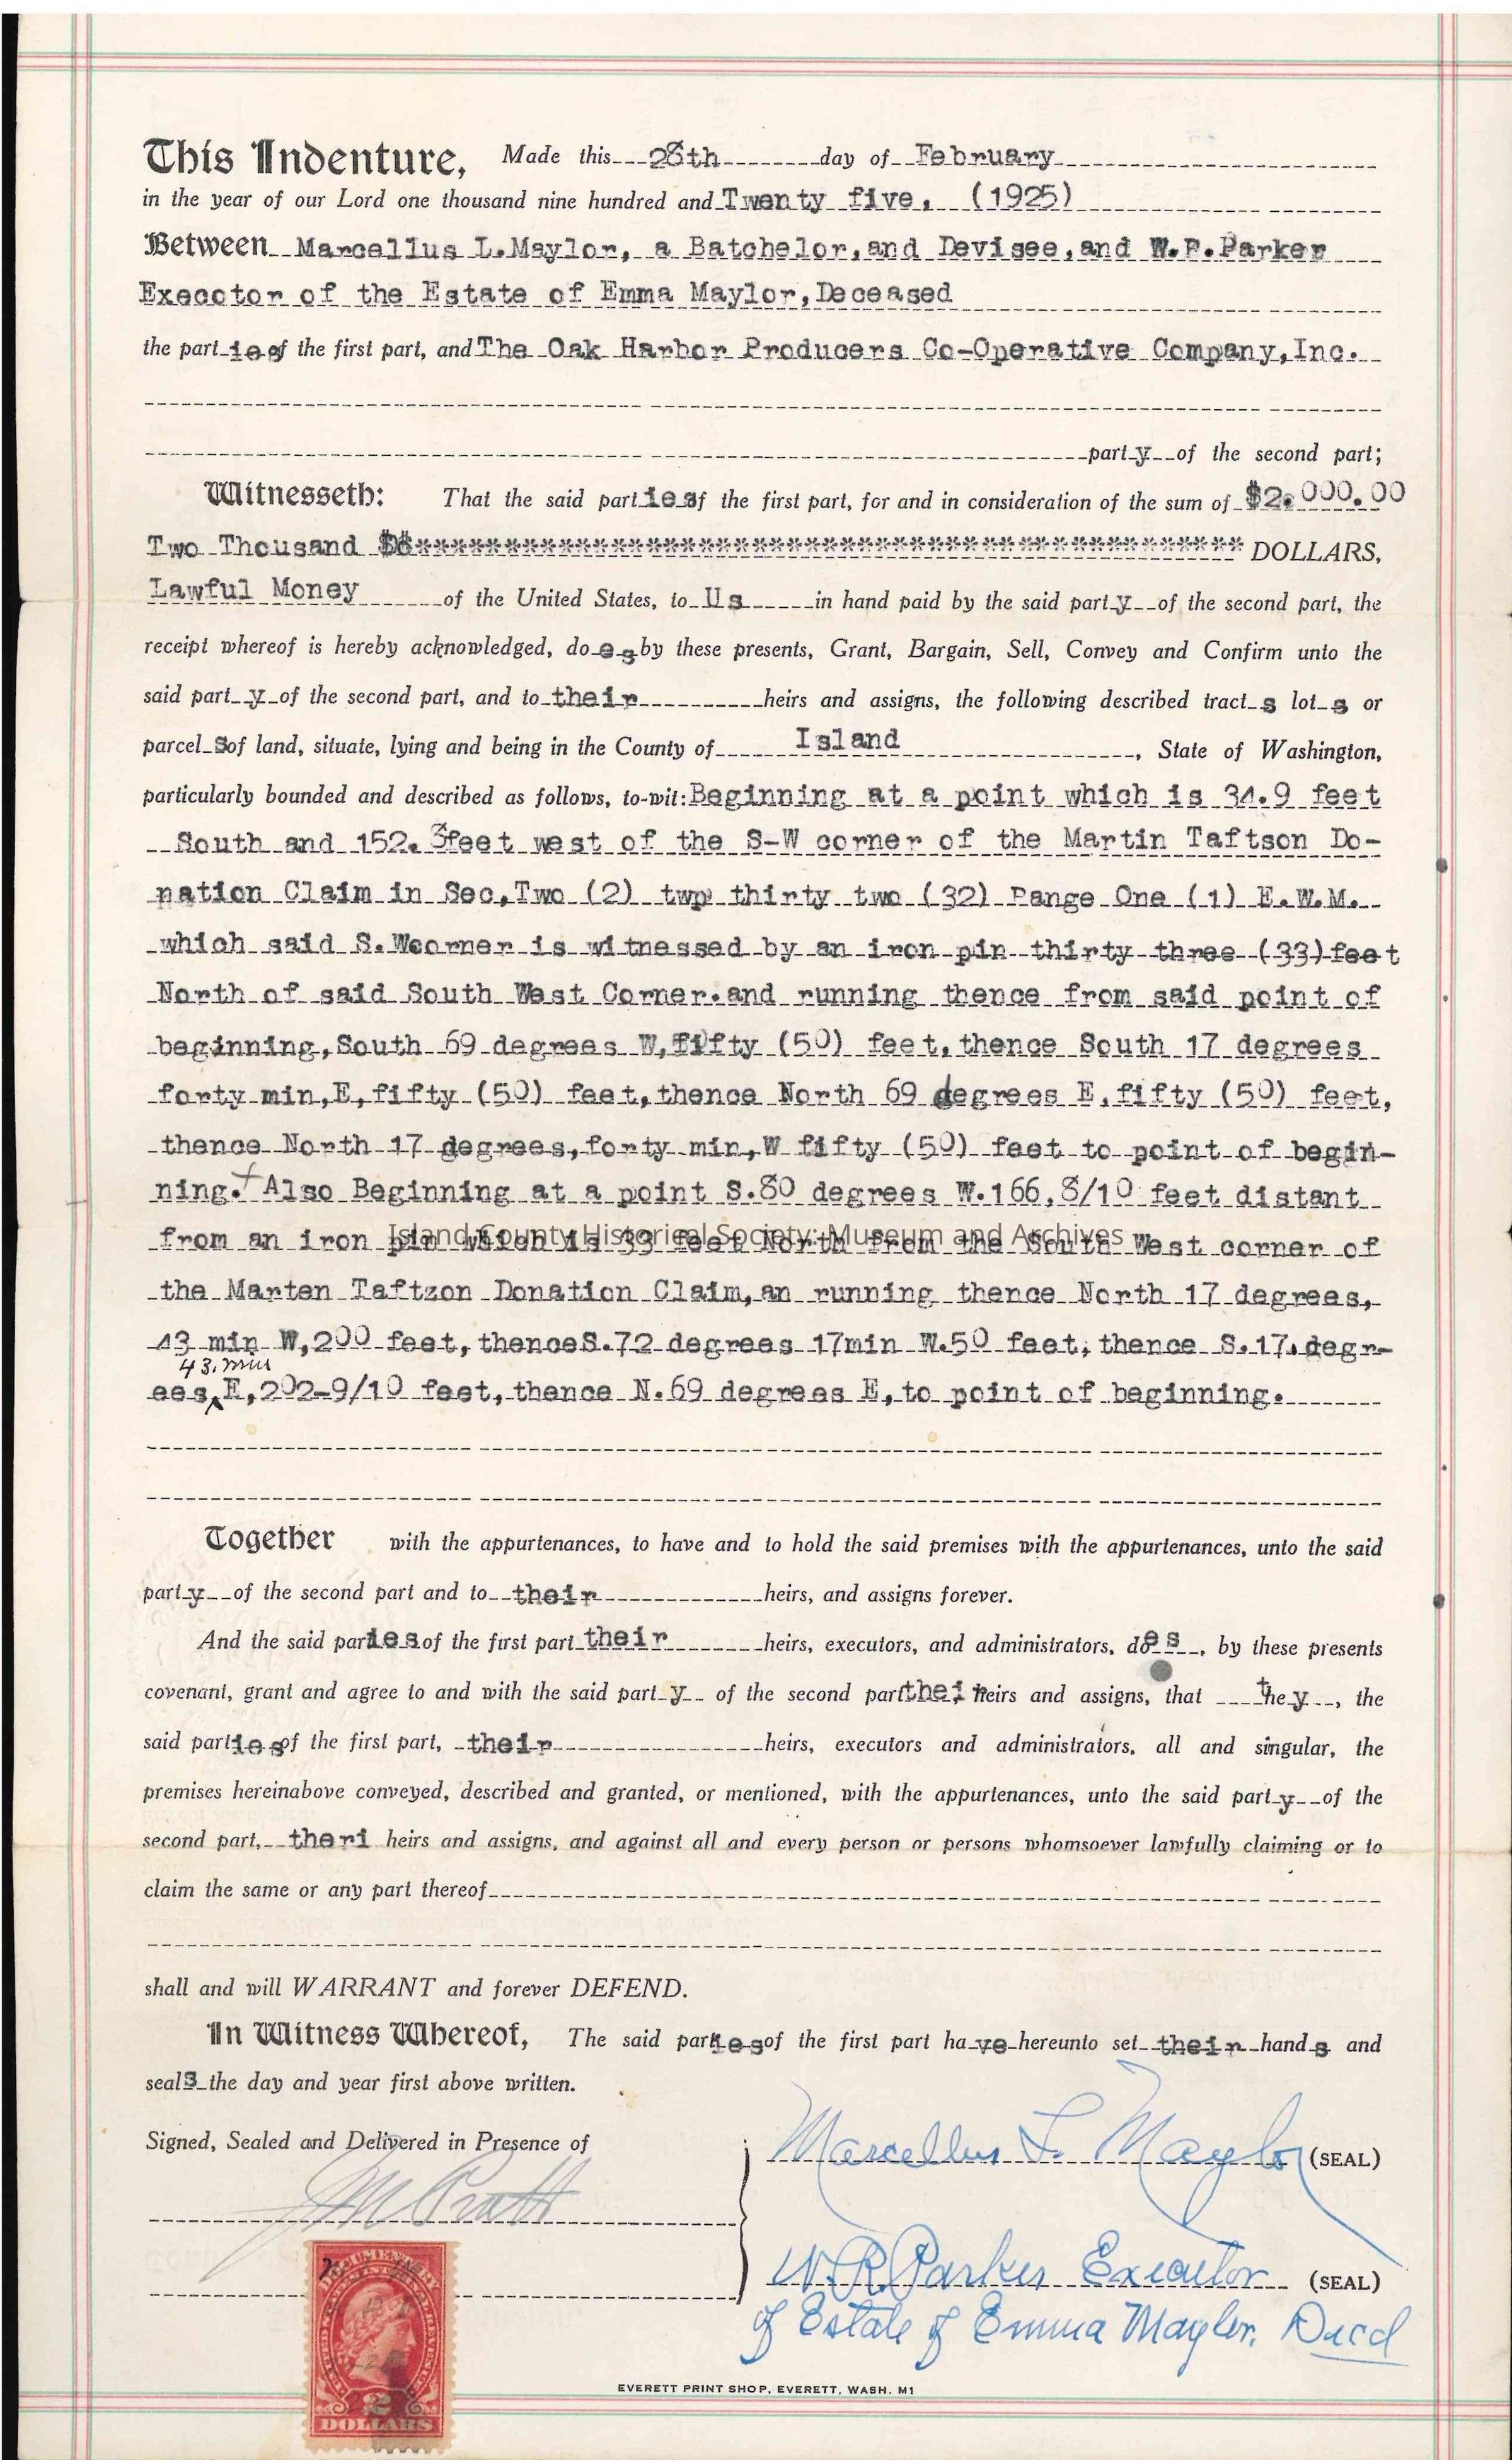 This Indenture, Made this 28th day of February
in the year of our Lord one thousand nine hundred and Twenty five, (1925)
Between Marcellus L.Maylor, a Batchelor,and Devisee,and W.R.Parker
Execotor of the Estate of Emma Maylor,Deceased
the part ies of the first part, and The Oak Harbor Producers Co-Operative Company,Inc.
part y of the second part;
Witnesseth: That the said part ies of the first part, for and in consideration of the sum of $2,000.00
Two Thousand ************************************************ DOLLARS,
Lawful Money of the United States, to Us in hand paid by the said part y of the second part, the
receipt whereof is hereby acknowledged, do es by these presents, Grant, Bargain, Sell, Convey and Confirm unto the
said part y of the second part, and to their heirs and assigns, the following described tract s lot s or
parcel s of land, situate, lying and being in the County of Island , State of Washington,
particularly bounded and described as follows, to-wit: Beginning at a point which is 34.9 feet
South and 152.3feet west of the S-W corner of the Martin Taftson Do-
nation Claim in Sec,Two (2) twp thirty two (32) Range One (1) E.W.M.
which said S.Wcorner is witnessed by an iron pin thirty three (33)feet
North of said South West Corner.and running thence from said point of
beginning,South 69 degrees W,fifty (50) feet,thence South 17 degrees
forty min,E,fifty (50) feet,thence North 69 degrees E,fifty (50) feet,
thence North 17 degrees,forty min,W fifty (50) feet to point of begin-
ning. Also Beginning at a point S.80 degrees W.166,8/10 feet distant
from an iron pin which is 33 feet North from the South West corner of
Island County Historical Society: Museum and Archives
the Marten Taftzon Donation Claim,an running thence North 17 degrees,
43 min W,200 feet,thenceS.72 degrees 17min W.50 feet; thence S.17.degr-
43.min
ees,E,202-9/10 feet,thence N.69 degrees E,to point of beginning.
Together with the appurtenances, to have and to hold the said premises with the appurtenances, unto the said
part y of the second part and to their heirs, and assigns forever.
And the said parties of the first part their heirs, executors, and administrators, do es , by these presents
covenant, grant and agree to and with the said part y of the second part thei heirs and assigns, that they , the
said parties of the first part, their heirs, executors and administrators, all and singular, the
premises hereinabove conveyed, described and granted, or mentioned, with the appurtenances, unto the said part y of the
second part, theri heirs and assigns, and against all and every person or persons whomsoever lawfully claiming or to
claim the same or any part thereof
shall and will WARRANT and forever DEFEND.
In Witness Whereof, The said parties of the first part ha ve hereunto set their hand s and
seal s the day and year first above written.
Signed, Sealed and Delivered in Presence of
Marcellus L. Maylor (SEAL)
J M Pratt
W.R.Parker Executor (SEAL)
of Estate of Emma Maylor, Decd
DOCUMENTARY
2
DOLLARS
EVERETT PRINT SHOP, EVERETT, WASH. M1